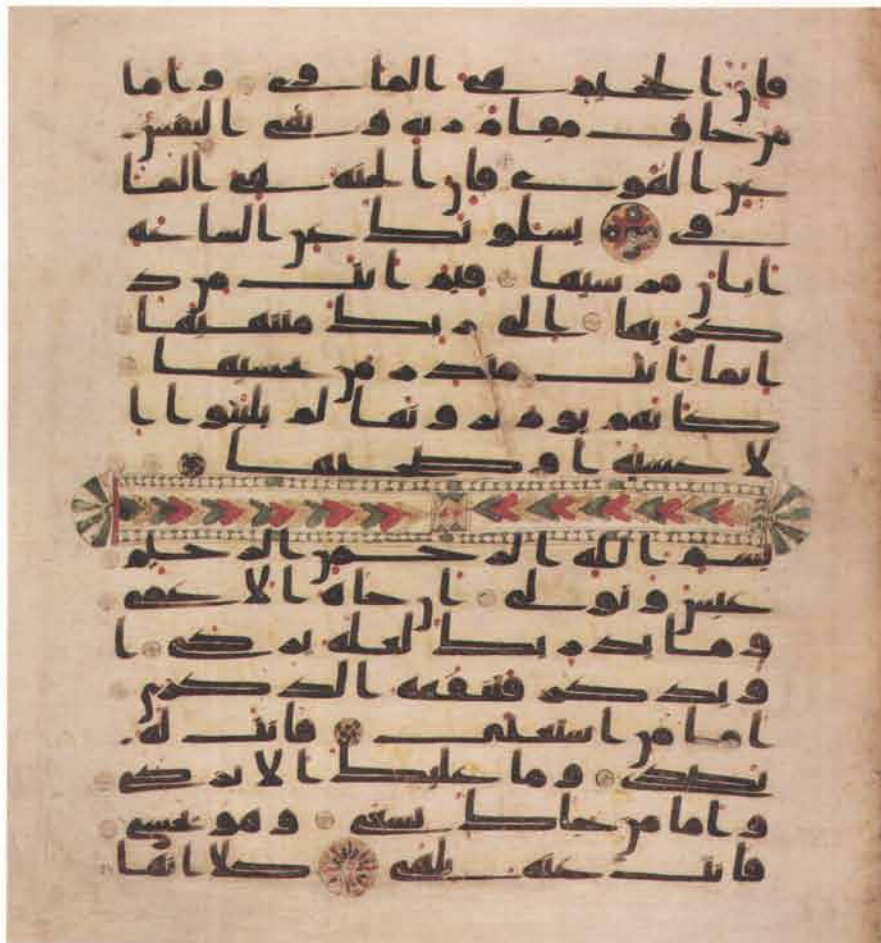 فان الجحيم هى الماوى واما
من خاف مقام ربه ونهى النفس
عن الهوى فان الجنه هى الما
وى يسلونك عن الساعه
ايان مرسيها فيم انت من ذ
كريها الى ربك منتهيها
انما انت منذر من يخشيها
كانهم يوم يرونها لم يلبثوا ا
لا عشيه او ضحيها
بسم الله الرحمن الرحيم
عبس وتولى ان جاه الاعمى
وما يدريك لعله يزكى ا
و يذكر فتنفعه الذكرى
اما من استغنى فانت له
تصدى وما عليك الا يزكى
واما من جاك يسعى وهو يخشى
فانت عنه تلهى كلا انها